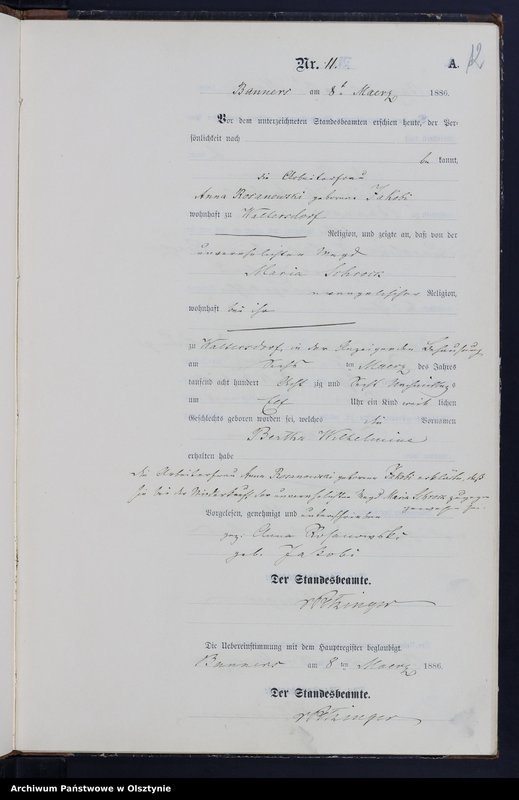 12
Nr. 11. A.
Banners am 8t Maerz 1886.
Vor dem unterzeichneten Standesbeamten erschien heute, der Per-
sönlichkeit nach
be kannt,
die Arbeiterfrau
Anna Rosanowski geborene Jakobi
wohnhaft zu Waltersdorf
Religion, und zeigte an, daß von der
unverehelichten Magd
Maria Schrock
evangelischer Religion,
wohnhaft bei ihr
zu Waltersdorf, in der Anzeigenden Behausung
am Sechs ten Maerz des Jahres
tausend acht hundert Acht zig und Sechs Nachmittags
um Elf Uhr ein Kind weib lichen
Geschlechts geboren worden sei, welches die Vornamen
Bertha Wilhelmine
erhalten habe
Die Arbeiterfrau Anna Rosanowski geborene Jakobi erklärte, daß
sie bei der Niederkunft der unverehelichten Magd Maria Schrock zugegen
gewesen sei.
Vorgelesen, genehmigt und unterschrieben
gez. Anna Rosanowski
geb. Jakobi
Der Standesbeamte.
Die Uebereinstimmung mit dem Hauptregister beglaubigt.
Banners am 8 ten Maerz 1886.
Der Standesbeamte.
Archiwum Państwowe w Olsztynie